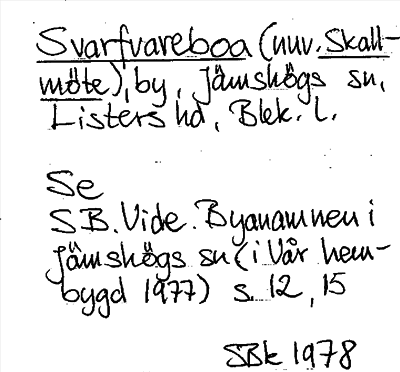 Svarfvareboa (nuv. Skall-
möte), by, Jämshögs sn,
Listers hd, Blek. l.
Se
S B. Vide. Byanamnen i
Jämshögs sn (i Vår hem-
bygd 1977) s. 12, 15
SBk 1978